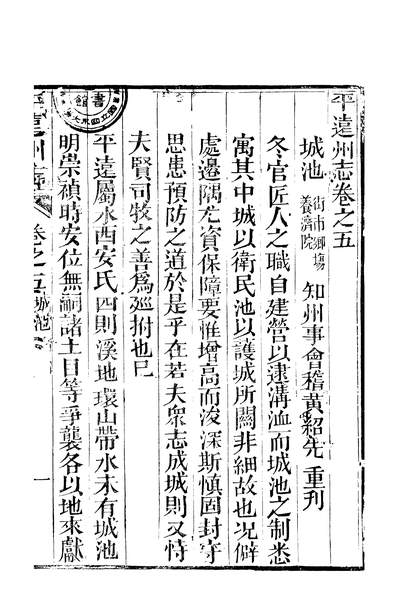 平遠州志卷之五
城池 街市鄉塲 養濟院 知州事會稽黃紹先重刊
冬官匠人之職自建營以逮溝洫而城池之制悉
寓其中城以衛民池以護城所關非細故也况僻
處邊隅尤資保障要惟增高而浚深斯慎固封守
思患預防之道於是乎在若夫衆志成城則又恃
夫賢司牧之善為廵拊也已
平遠屬水西安氏四則溪地環山帶水未有城池
明崇禎時安位無嗣諸土目等爭襲各以地來獻
平遠州志 卷之五 城池 一